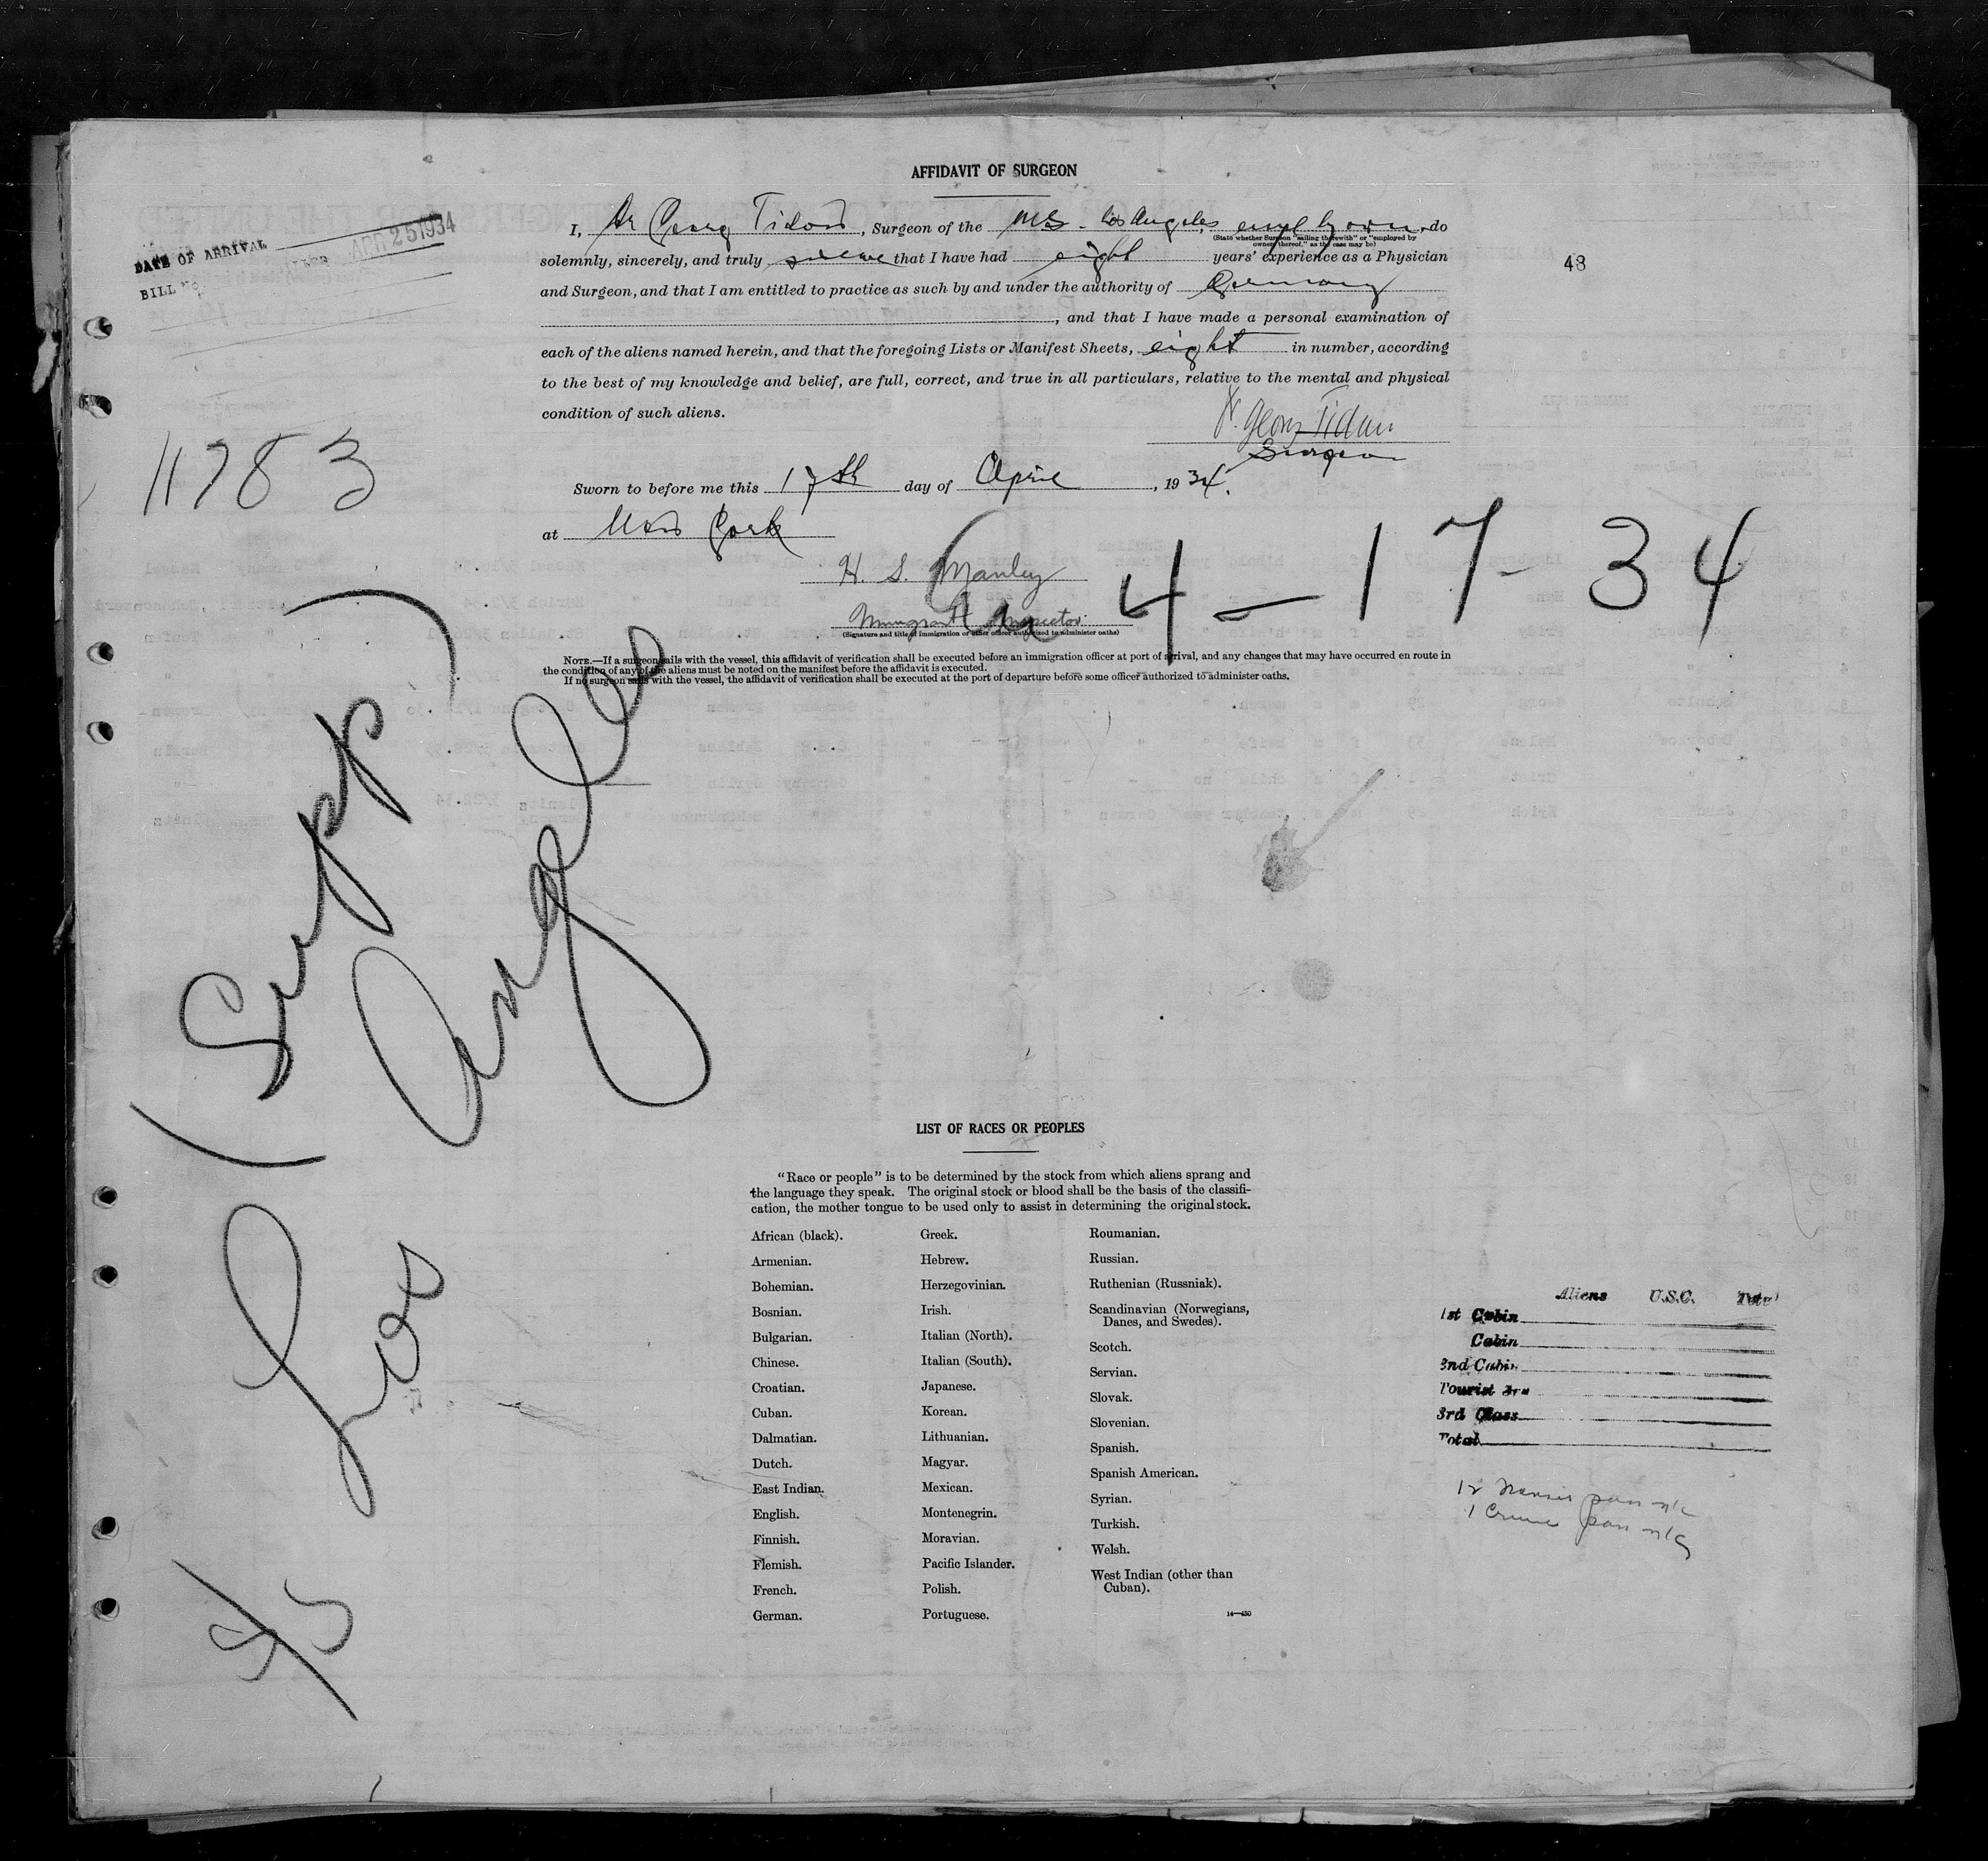 AFFIDAVIT OF SURGEON
I, Dr Georg Tidow, Surgeon of the MS. Los Angeles, empl by own, do
(State whether Surgeon "sailing therewith" or "employed by
owners thereof," as the case may be)
solemnly, sincerely, and truly swear that I have had eight years' experience as a Physician
and Surgeon, and that I am entitled to practice as such by and under the authority of Germany
, and that I have made a personal examination of
each of the aliens named herein, and that the foregoing Lists or Manifest Sheets, eight in number, according
to the best of my knowledge and belief, are full, correct, and true in all particulars, relative to the mental and physical
condition of such aliens.
Dr. Georg Tidow
Surgeon
Sworn to before me this 17th day of April, 1934.
at New York
H. S. Manley
Immigrant Inspector
(Signature and title of immigration or other officer authorized to administer oaths)
NOTE.—If a surgeon sails with the vessel, this affidavit of verification shall be executed before an immigration officer at port of arrival, and any changes that may have occurred en route in
the condition of any of the aliens must be noted on the manifest before the affidavit is executed.
If no surgeon sails with the vessel, the affidavit of verification shall be executed at the port of departure before some officer authorized to administer oaths.
DATE OF ARRIVAL
APR 25 1934
BILL
48
11783
4-17-34
(Supp)
Los Angeles
LIST OF RACES OR PEOPLES
"Race or people" is to be determined by the stock from which aliens sprang and
the language they speak. The original stock or blood shall be the basis of the classifi-
cation, the mother tongue to be used only to assist in determining the original stock.
African (black).
Armenian.
Bohemian.
Bosnian.
Bulgarian.
Chinese.
Croatian.
Cuban.
Dalmatian.
Dutch.
East Indian.
English.
Finnish.
Flemish.
French.
German.
Greek.
Hebrew.
Herzegovinian.
Irish.
Italian (North).
Italian (South).
Japanese.
Korean.
Lithuanian.
Magyar.
Mexican.
Montenegrin.
Moravian.
Pacific Islander.
Polish.
Portuguese.
Roumanian.
Russian.
Ruthenian (Russniak).
Scandinavian (Norwegians,
Danes, and Swedes).
Scotch.
Servian.
Slovak.
Slovenian.
Spanish.
Spanish American.
Syrian.
Turkish.
Welsh.
West Indian (other than
Cuban).
14—430
Aliens U.S.C. Total
1st Cabin
Cabin
2nd Cabin
Tourist 3rd
3rd Class
Total